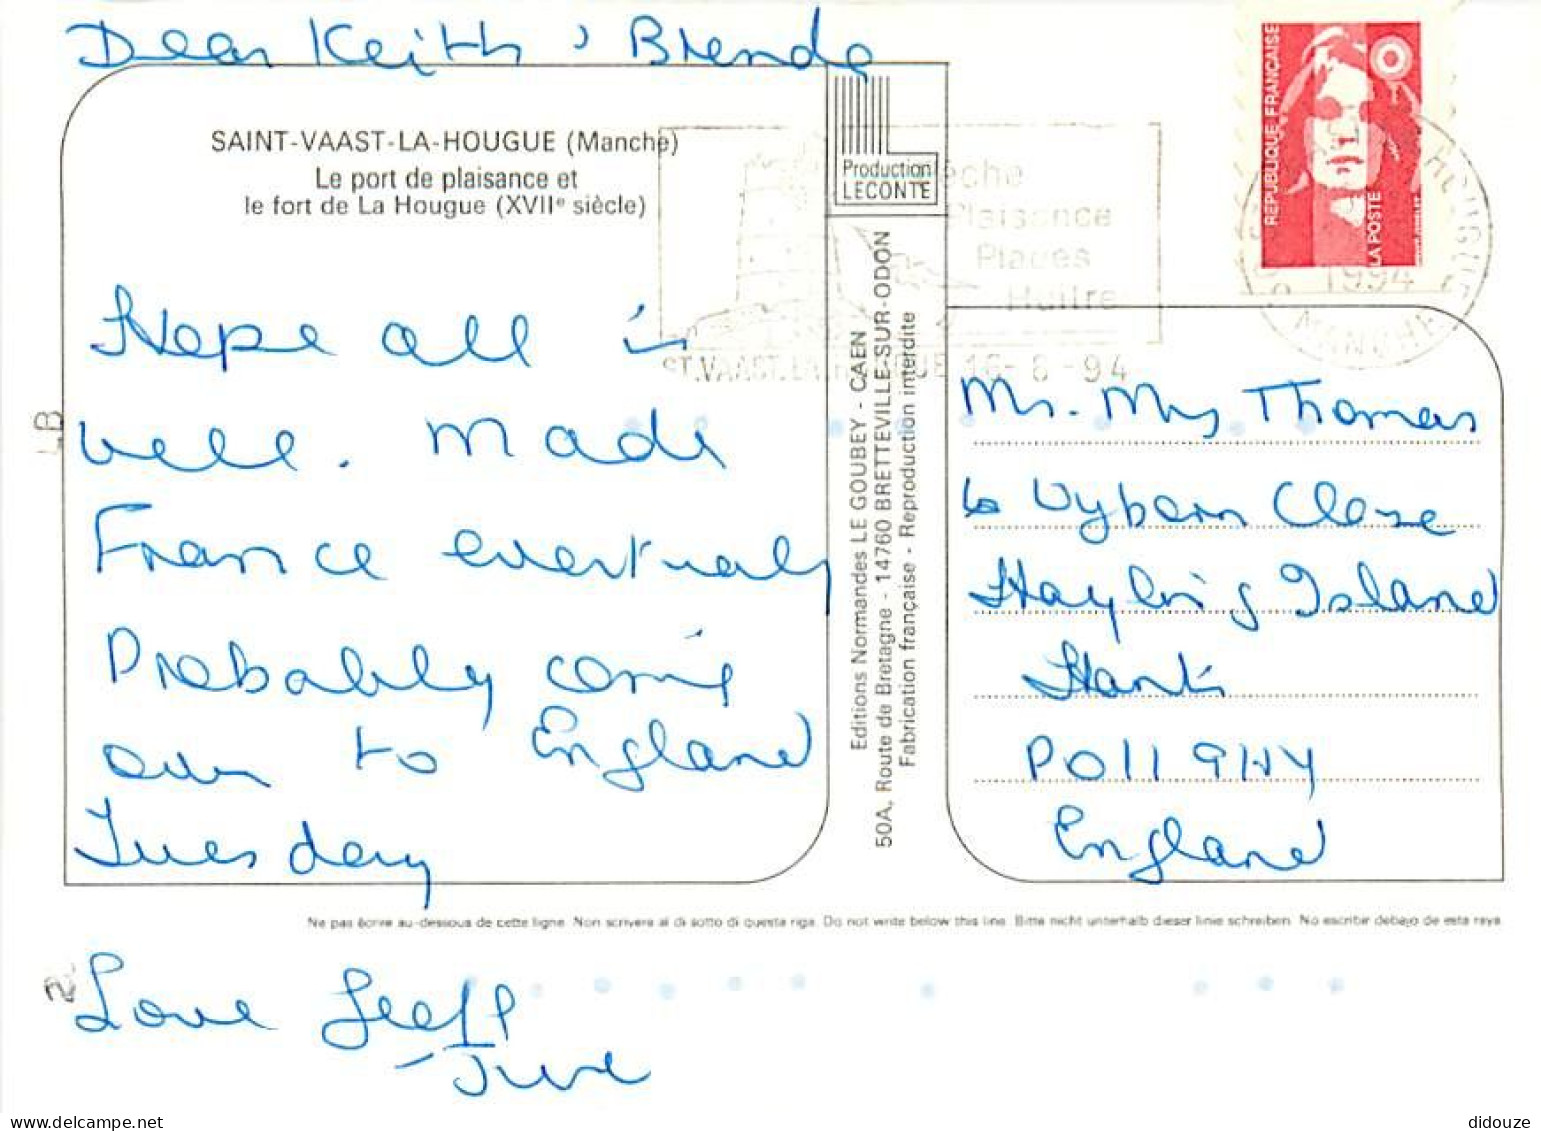 Dear Keith , Brenda
SAINT-VAAST-LA-HOUGUE (Manche)
Le port de plaisance et
le fort de La Hougue (XVIIe siècle)
Hope all is
well. Made
France eventually
Probably coming
over to England
Tuesday
Love Geoff
- June
Production
LECONTE
Plaisance
Plages
Huitre
ST.VAAST.LA.HOUGUE 16-6-94
REPUBLIQUE FRANÇAISE
LA POSTE
1994
MANCHE
Editions Normandes LE GOUBEY - CAEN
50A, Route de Bretagne - 14760 BRETTEVILLE-SUR-ODON
Fabrication française - Reproduction interdite
Mr. Mrs Thomas
6 Wyborn Close
Hayling Island
Hants
PO11 9HY
England
Ne pas écrire au-dessous de cette ligne. Non scrivere al di sotto di questa riga. Do not write below this line. Bitte nicht unterhalb dieser linie schreiben. No escribir debajo de esta raya.
didouze